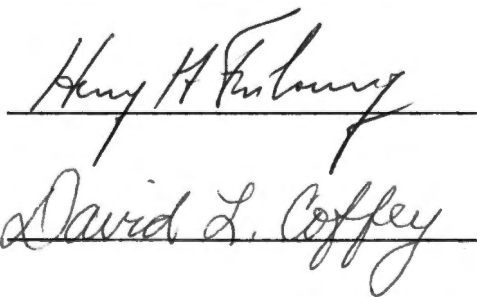 Henry H Fribourg
David L. Coffey